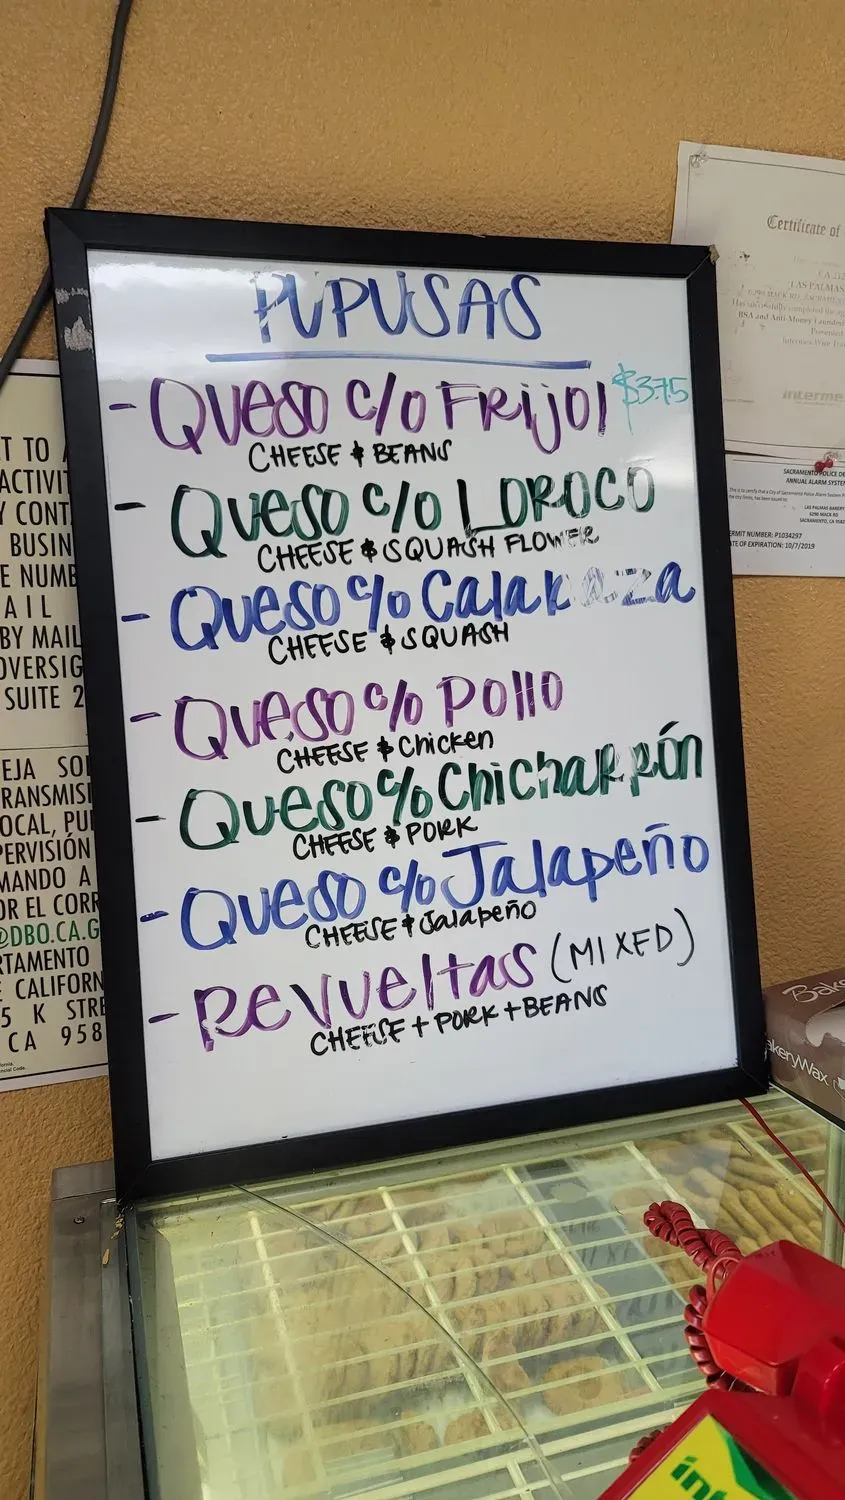 PUPUSAS
- Queso c/o Frijol $3.75
CHEESE & BEANS
- Queso c/o LOROCO
CHEESE & SQUASH FLOWER
- Queso c/o Calabaza
CHEESE & SQUASH
- Queso c/o Pollo
CHEESE & Chicken
- Queso c/o Chicharrón
CHEESE & PORK
- Queso c/o Jalapeño
CHEESE & Jalapeño
- Revueltas (MIXED)
CHEESE + PORK + BEANS
T TO
ACTIVIT
Y CONT
BUSIN
E NUMB
AIL
BY MAIL
OVERSIG
SUITE 2
EJA SO
RANSMIS
OCAL, PU
PERVISIÓN
MANDO A
OR EL CORR
@DBO.CA.G
RTAMENTO
CALIFORN
5 K STRE
CA 958
Certificate of
LAS PALMAS
BSA and Anti-Money Laundering
Presented
Intermex Wire Tra
interme
SACRAMENTO POLICE DE
ANNUAL ALARM SYSTE
LAS PALMAS BAKERY
5290 MACK RD
SACRAMENTO, CA 9582
ERMIT NUMBER: P1034297
ATE OF EXPIRATION: 10/7/2019
Bake
akeryWax
int